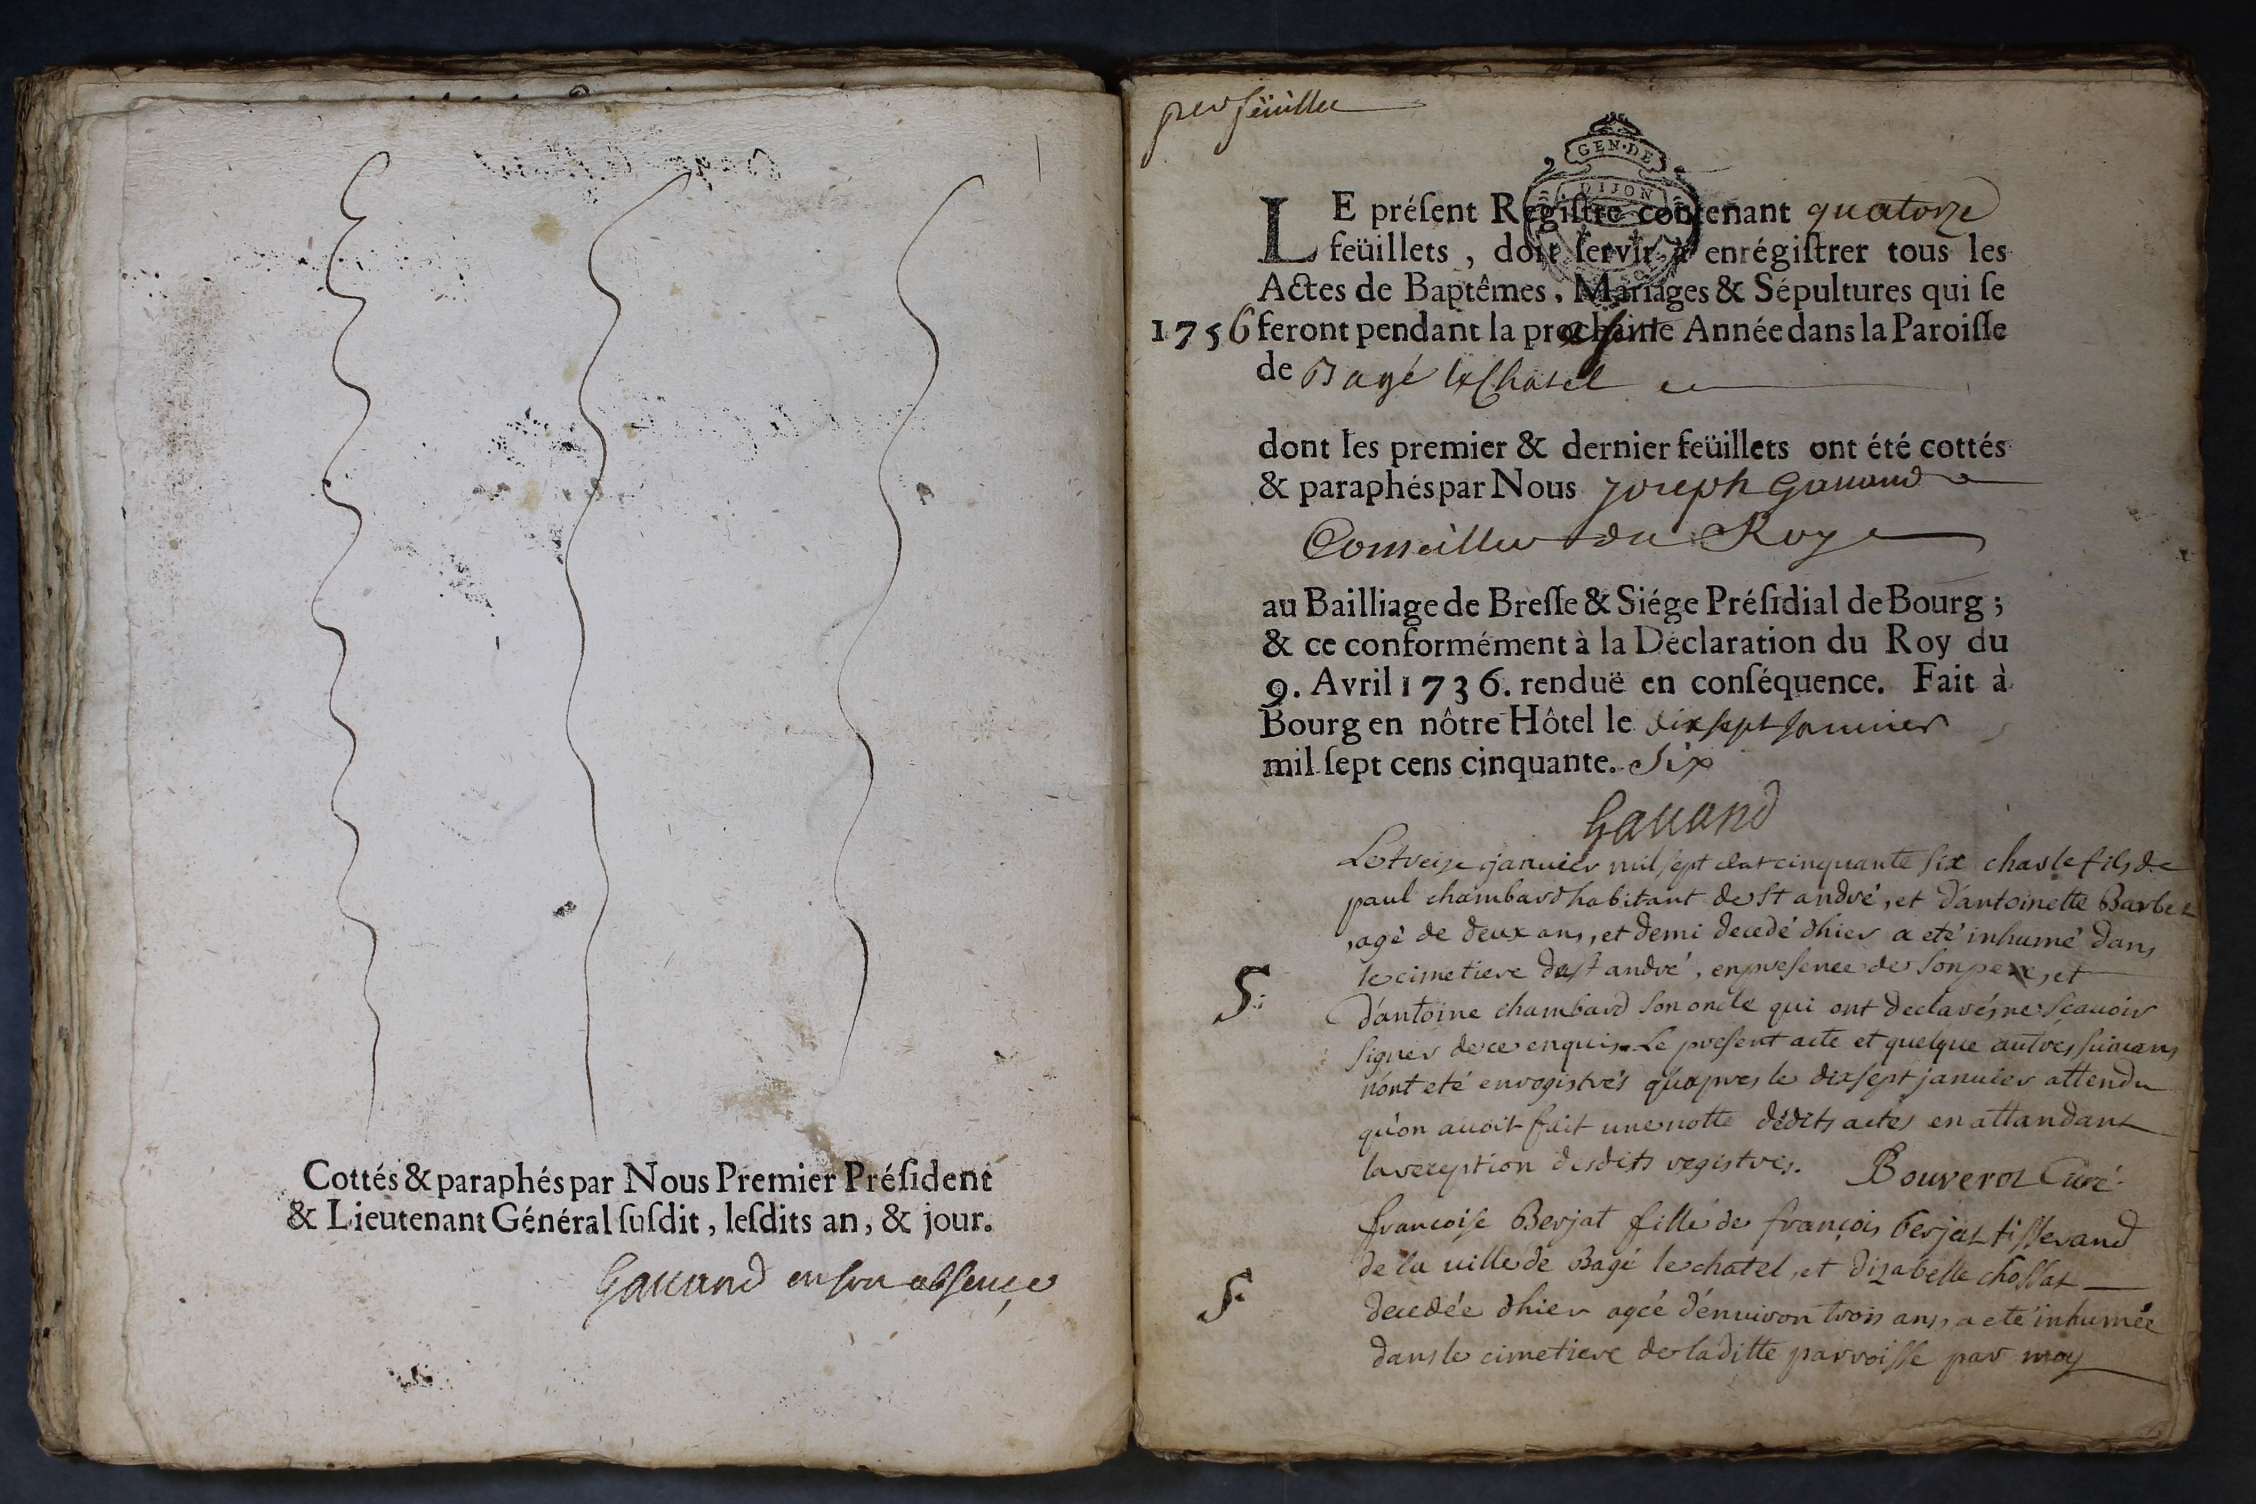 Cottés & paraphés par Nous Premier Préſident
& Lieutenant Général ſuſdit, leſdits an, & jour.
Gauand en son absence
per feüillet
GEN·DE
DIJON
LE préſent Regiſtre contenant quatorze
feüillets, doit ſervir à enrégiſtrer tous les
Actes de Baptêmes, Mariages & Sépultures qui ſe
1756 feront pendant la prochaine Année dans la Paroiſſe
de Bagé le Chatel
dont les premier & dernier feüillets ont été cottés
& paraphés par Nous Joseph Gauand
Conseiller du Roy
au Bailliage de Breſſe & Siége Préſidial de Bourg ;
& ce conformément à la Déclaration du Roy du
9. Avril 1736. renduë en conſéquence. Fait à
Bourg en nôtre Hôtel le dix sept Januier
mil ſept cens cinquante. Six
Gauand
Le treize januier mil sept cent cinquante six charle fils de
paul chambard habitant de st andré, et d'antoinette Barbet
, agé de deux ans, et demi decedé d'hier a eté inhumé dans
le cimetiere de st andré, en presence de son pere, et
S: d'antoine chambard son oncle qui ont declarés ne sçauoir
signer de ce enquis. Le present acte et quelque autres suiuans
n'ont eté enregistrés qu'apres le dix sept januier attendu
qu'on auoit fait une notte dédits actes en attandant
la reception desdits registres. Bouverot Curé.
francoise Berjat fille de françois berjat tisserand
de la uille de Bagé le chatel, et d'izabelle chossat
S: decedée d'hier agée d'énuiron trois ans, a eté inhumée
dans le cimetiere de laditte parroisse par moy